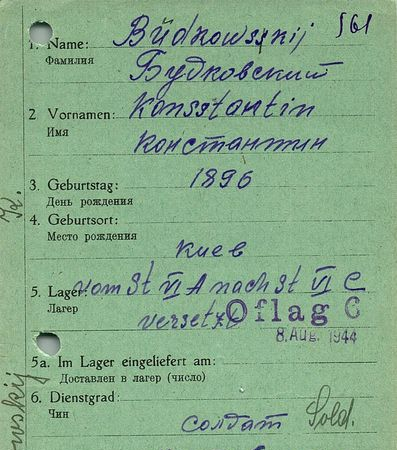 561
1. Name: Büdkowsskij
Фамилия Будковский
2 Vornamen: Konsstantin
Имя Константин
3. Geburtstag: 1896
День рождения
4. Geburtsort:
Место рождения
Киев
5. Lager: vom St VI A nach St VI C
Лагер versetzt Oflag 6
8. Aug. 1944
5a. Im Lager eingeliefert am:
Доставлен в лагер (число)
6. Dienstgrad:
Чин
солдат Sold.
K.
wskij